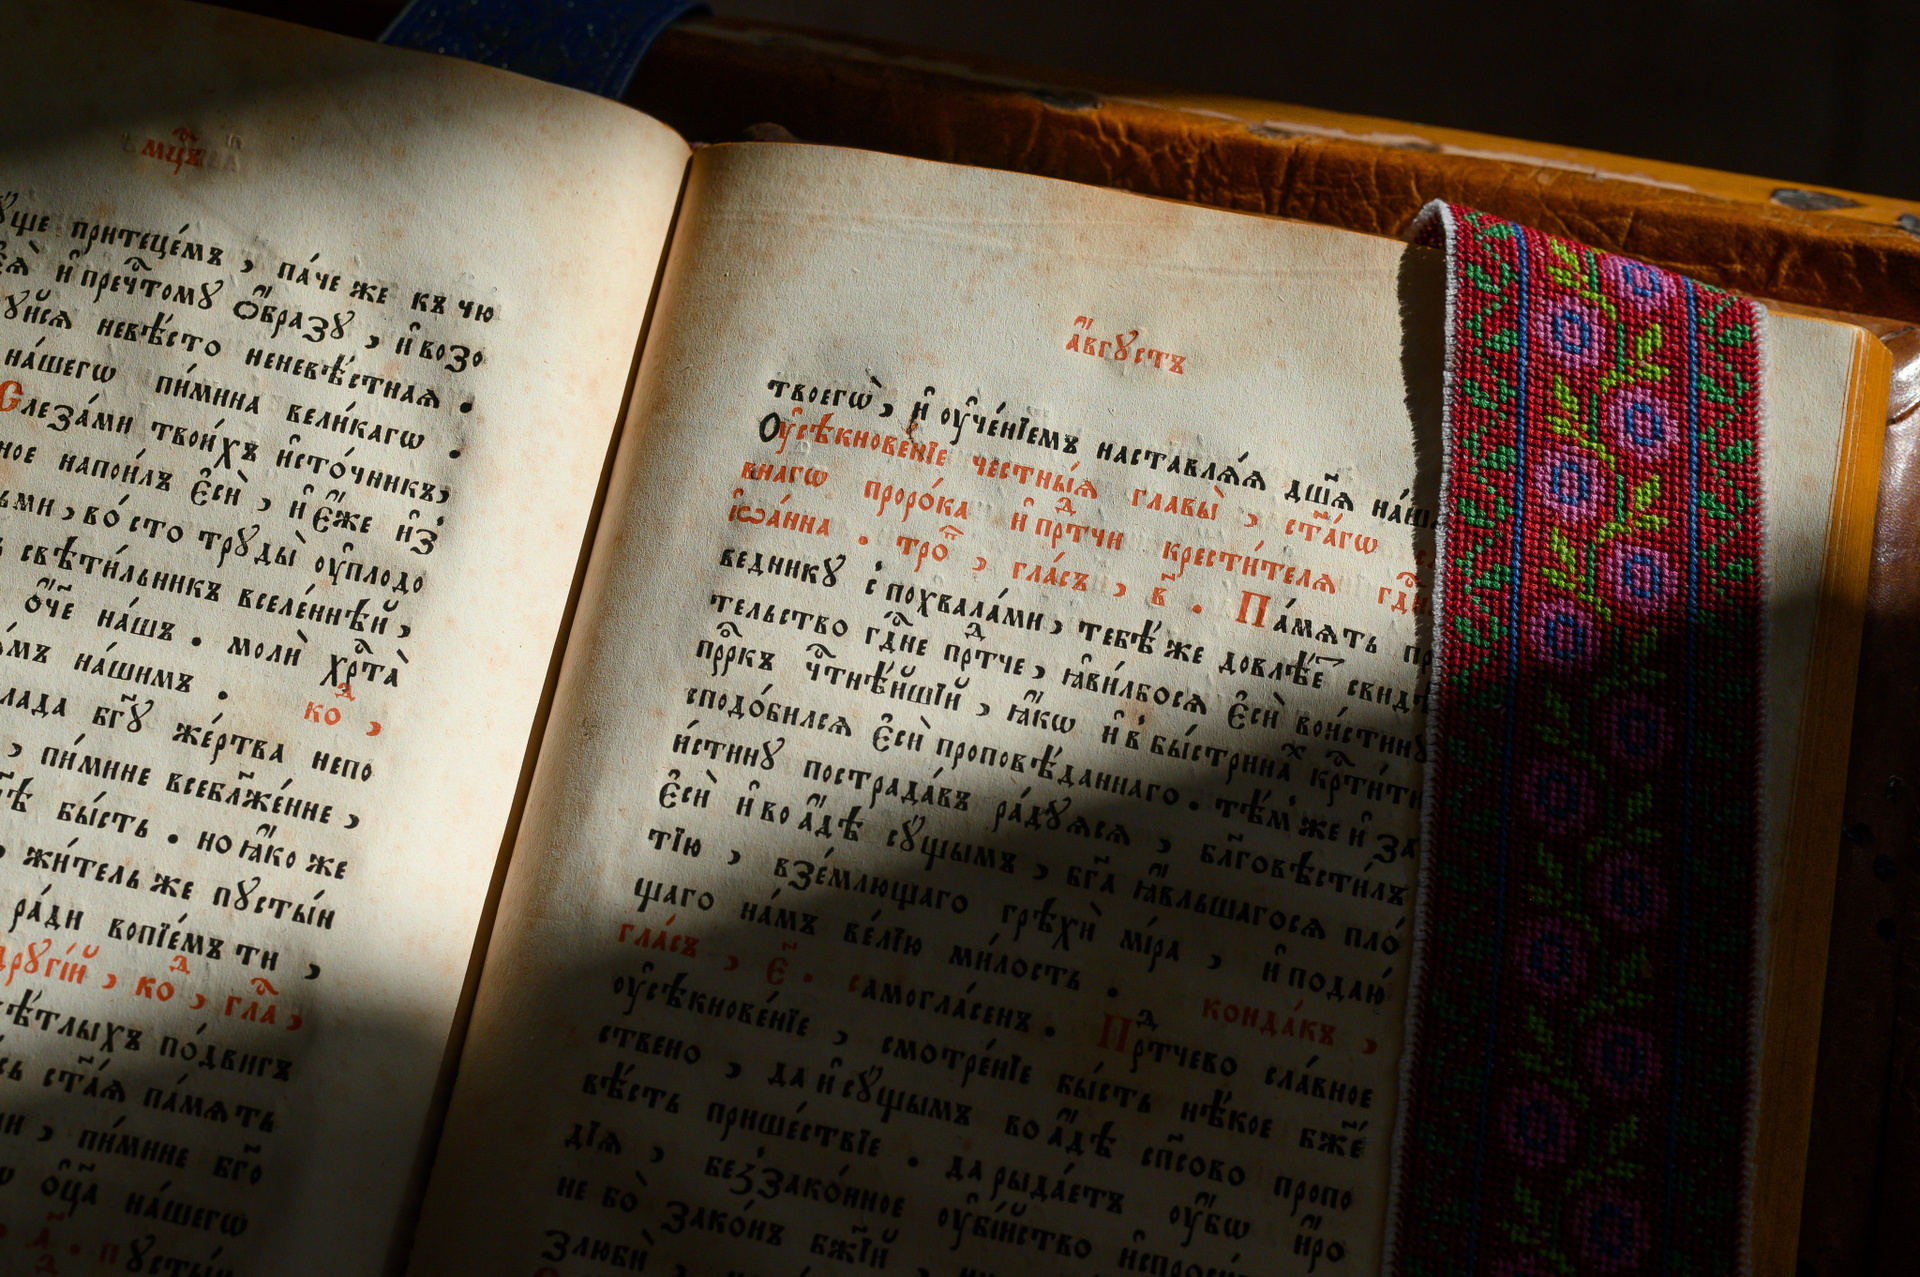 мц҃ъ
притеце́мъ , па́че же къ чю
и҆ пречⷭ҇томꙋ ѻ҆́бразꙋ , и҆ возо
невѣ́сто неневѣ́стная .
на́шегѡ пи́мина вели́кагѡ .
Слеза́ми твои́хъ и҆сто́чникъ ,
напои́лъ є҆сѝ , и҆ є҆́же и҆з̾
во́ сто трꙋды̀ оу҆плодо
свѣти́льникъ вселе́ннѣй ,
ѻ҆́ч҃е на́шъ . молѝ хрⷭ҇та̀
на́шимъ . коⷣ ,
бг҃ꙋ же́ртва непо
, пи́мине всебл҃же́нне ,
бы́сть . но ꙗ҆́ко же
жи́тель же пꙋсты́и
ра́ди вопїе́мъ ти ,
дрꙋгі́й , коⷣ , глаⷭ҇ ,
по́двигъ
ст҃а́я па́мять
, пи́мине бг҃о
ѻ҆ц҃а на́шегѡ
пꙋсты́н
а҆́вгꙋстъ
твоегѡ̀ , и҆ оу҆че́нїемъ наставлѧ́ѧ дш҃ѧ на́ша
Оу҆сѣкнове́нїе честны́ѧ главы̀ , ст҃а́гѡ
внагѡ проро́ка и҆ прⷣтчи крести́телѧ гдⷭ҇нѧ
і҆ѡа́нна . троⷫ҇ , гла́съ , в҃ . Па́мѧть пр
ведникꙋ с похвала́ми , тебѣ́ же довлѣ́е свидѣ
тельство гдⷭ҇не прⷣтче , ꙗ҆ви́лбосѧ є҆сѝ вои́стиннꙋ
прⷪ҇ркъ чⷭ҇тнѣ́йшїй , ꙗ҆́кѡ и҆ в бы́стринаⷯ крⷭ҇ти́ти
сподо́билсѧ є҆сѝ проповѣ́даннаго . тѣ́мже и҆ за
и́стинꙋ пострада́въ ра́дꙋѧсѧ , бл҃говѣсти́лъ
є҆сѝ и҆ во а҆́дѣ сꙋ́щымъ , бг҃а ꙗ҆́вльшагосѧ пло́
тїю , взе́млющаго грѣхѝ мі́ра , и҆ подаю́
щаго на́мъ ве́лїю ми́лость . конда́къ ,
гла́съ , є҃ . самогла́сенъ . Прⷣтчево сла́вное
оу҆сѣкнове́нїе , смотре́нїе бы́сть нѣ́кое бж҃е́
ствено , да и҆ сꙋ́щымъ во а҆́дѣ сп҃сово пропо
вѣ́сть прише́ствїе . да рыда́етъ оу҆́бѡ и҆ро
дїѧ , беззако́нное оу҆бі́йство и҆спроси́
не бо̀ зако́нъ бж҃їй
злюбѝ